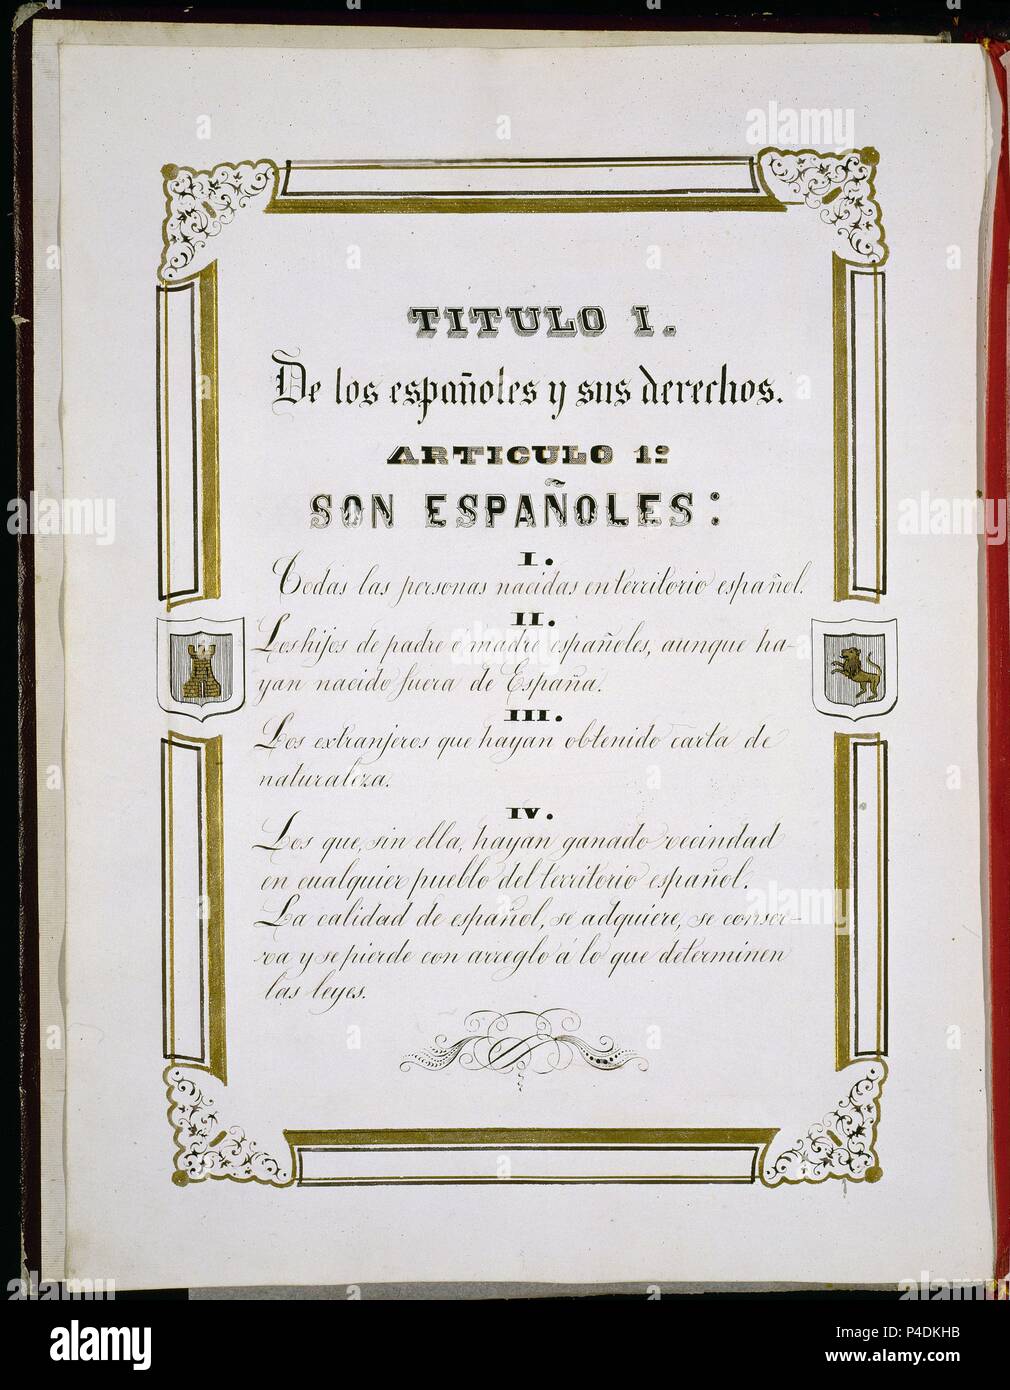 TITULO I.
De los españoles y sus derechos.
ARTICULO 1º
SON ESPAÑOLES:
I.
Todas las personas nacidas en territorio español.
II.
Los hijos de padre o madre españoles, aunque ha-
yan nacido fuera de España.
III.
Los extranjeros que hayan obtenido carta de
naturaleza.
IV.
Los que, sin ella, hayan ganado vecindad
en cualquier pueblo del territorio español.
La calidad de español, se adquiere, se conser-
va y se pierde con arreglo á lo que determinen
las leyes.
alamy
Image ID: P4DKHB
www.alamy.com